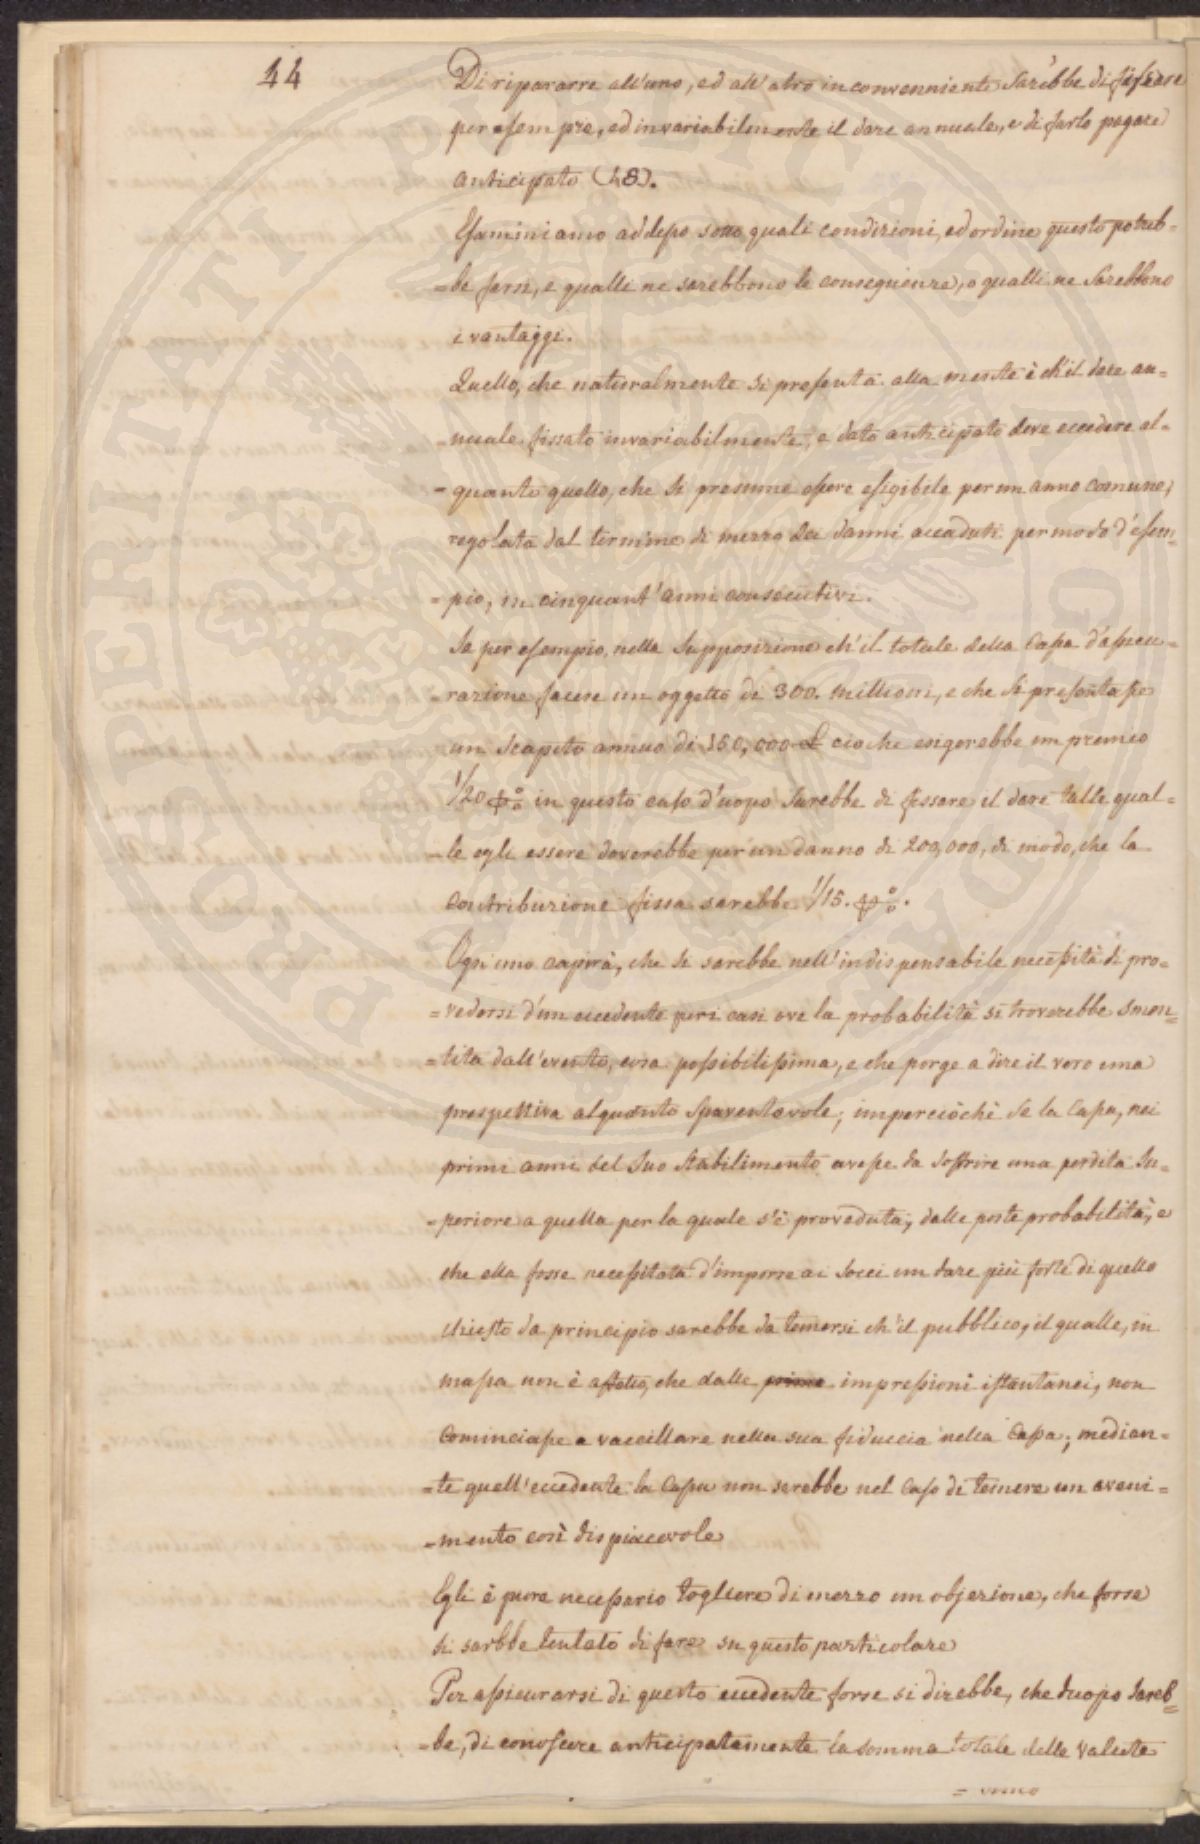 44
Di ripararre all'uno, ed all'altro inconvenniente sarebbe di fissare
per sempre, ed invariabilmente il dare annuale, e di farlo pagare
anticipato (48).
Esaminiamo addesso sotto quali condizioni, ed ordine questo potreb=
=be farsi, e qualli ne sarebbono le conseguenze, o qualli ne sarebbono
i vantaggi.
Quello, che naturalmente si presenta alla mente è ch'il dare an=
=nuale fissato invariabilmente, e dato anticipato deve eccedere al=
=quanto quello, che si presume essere esigibile per un anno comune,
regolata dal termine di mezzo dei danni accaduti per modo d'esem=
=pio, in cinquant'anni consecutivi.
Se per esempio, nella supposizione ch'il totale della Cassa d'assicu=
=razione facese un oggetto di 300. millioni, e che si presentasse
un scapito annuo di 150,000 £ cioche esigerebbe un premio
1/20 p% in questo caso d'uopo sarebbe di fissare il dare talle qual=
=le egli essere doverebbe per un danno di 200,000, di modo, che la
contribuzione fissa sarebbe 1/15. p%.
Ogni uno capirà, che si sarebbe nell'indispensabile necessità di pro=
=vedersi d'un eccedente peri casi ove la probabilità si troverebbe smen=
=tita dall'evento, cosa possibilissima, e che porge a dire il vero una
prespettiva alquanto spaventevole; imperciòchè se la Cassa, nei
primi anni del suo stabilimento avesse da soffrire una perdita su=
=periore a quella per la quale s'è proveduta, dalle poste probabilità, e
che ella fosse necessitata d'imporre ai socci un dare più forte di quello
chiesto da principio sarebbe da temersi ch'il pubblico, il qualle, in
massa non è affetto, che dalle prime impressioni istantanei, non
cominciasse a vaccillare nella sua fiduccia nella Cassa; median=
=te quell'eccedente la Cassa non sarebbe nel caso di temere un aveni=
=mento così dispiacevole
Egli è pure necessario togliere di mezzo un objezione, che forse
si sarbbe tentato di fare su questo particolare
Per assicurarsi di questo eccedente forse si direbbe, che duopo sareb=
=be, di conoscere anticipatamente la somma totale delle valute
PROSPERITATI PUBLICAE